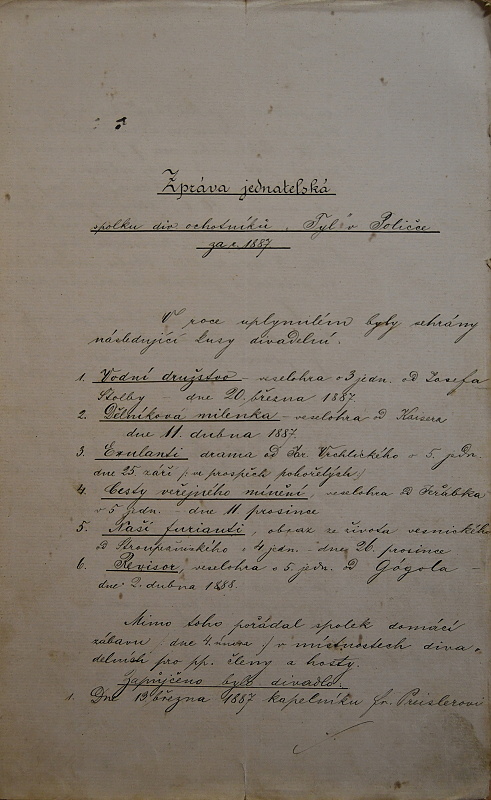 Zpráva jednatelská
spolku div. ochotníků „Tyl“ v Poličce
za r. 1887
V roce uplynulém byly sehrány
následující kusy divadelní.
1. Vodní družstvo – veselohra o 3 jedn. od Josefa
Štolby – dne 20. března 1887.
2. Dělníková milenka – veselohra od Kaisera
dne 11. dubna 1887.
3. Exulanti drama od Jar. Vrchlického o 5 jedn.
dne 25. září /: ve prospěch pohořelých :/
4. Cesty veřejného mínění, veselohra od Jeřábka
o 5 jedn. – dne 11 prosince
5. Naši furianti, obraz ze života vesnického
od Stroupežnického o 4 jedn. – dne 26. prosince
6. Revisor, veselohra o 5 jedn. od Gogola –
dne 2. dubna 1888.
Mimo toho pořádal spolek domácí
zábavu dne 4. února v místnostech diva-
delních pro pp. členy a hosty.
Zapůjčeno bylo divadlo.
1. Dne 19. března 1887 kapelníku Fr. Preislerovi